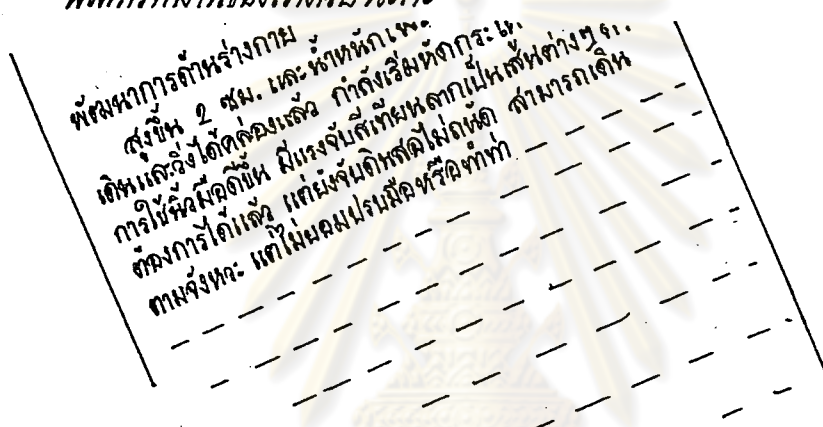 พัฒนาการด้านร่างกาย
สูงขึ้น 2 ซม. และน้ำหนัก
เดินและวิ่งได้คล่องแล้ว กำลังเริ่มหัด
การใช้นิ้วมือดีขึ้น มีแรงจับสีเทียนลากเป็นเส้นต่างๆ
ต้องการได้แล้ว แต่ยังจับดินสอไม่ถนัด สามารถเดิน
ตามจังหวะ แต่ไม่ยอมปรบมือหรือทำท่า